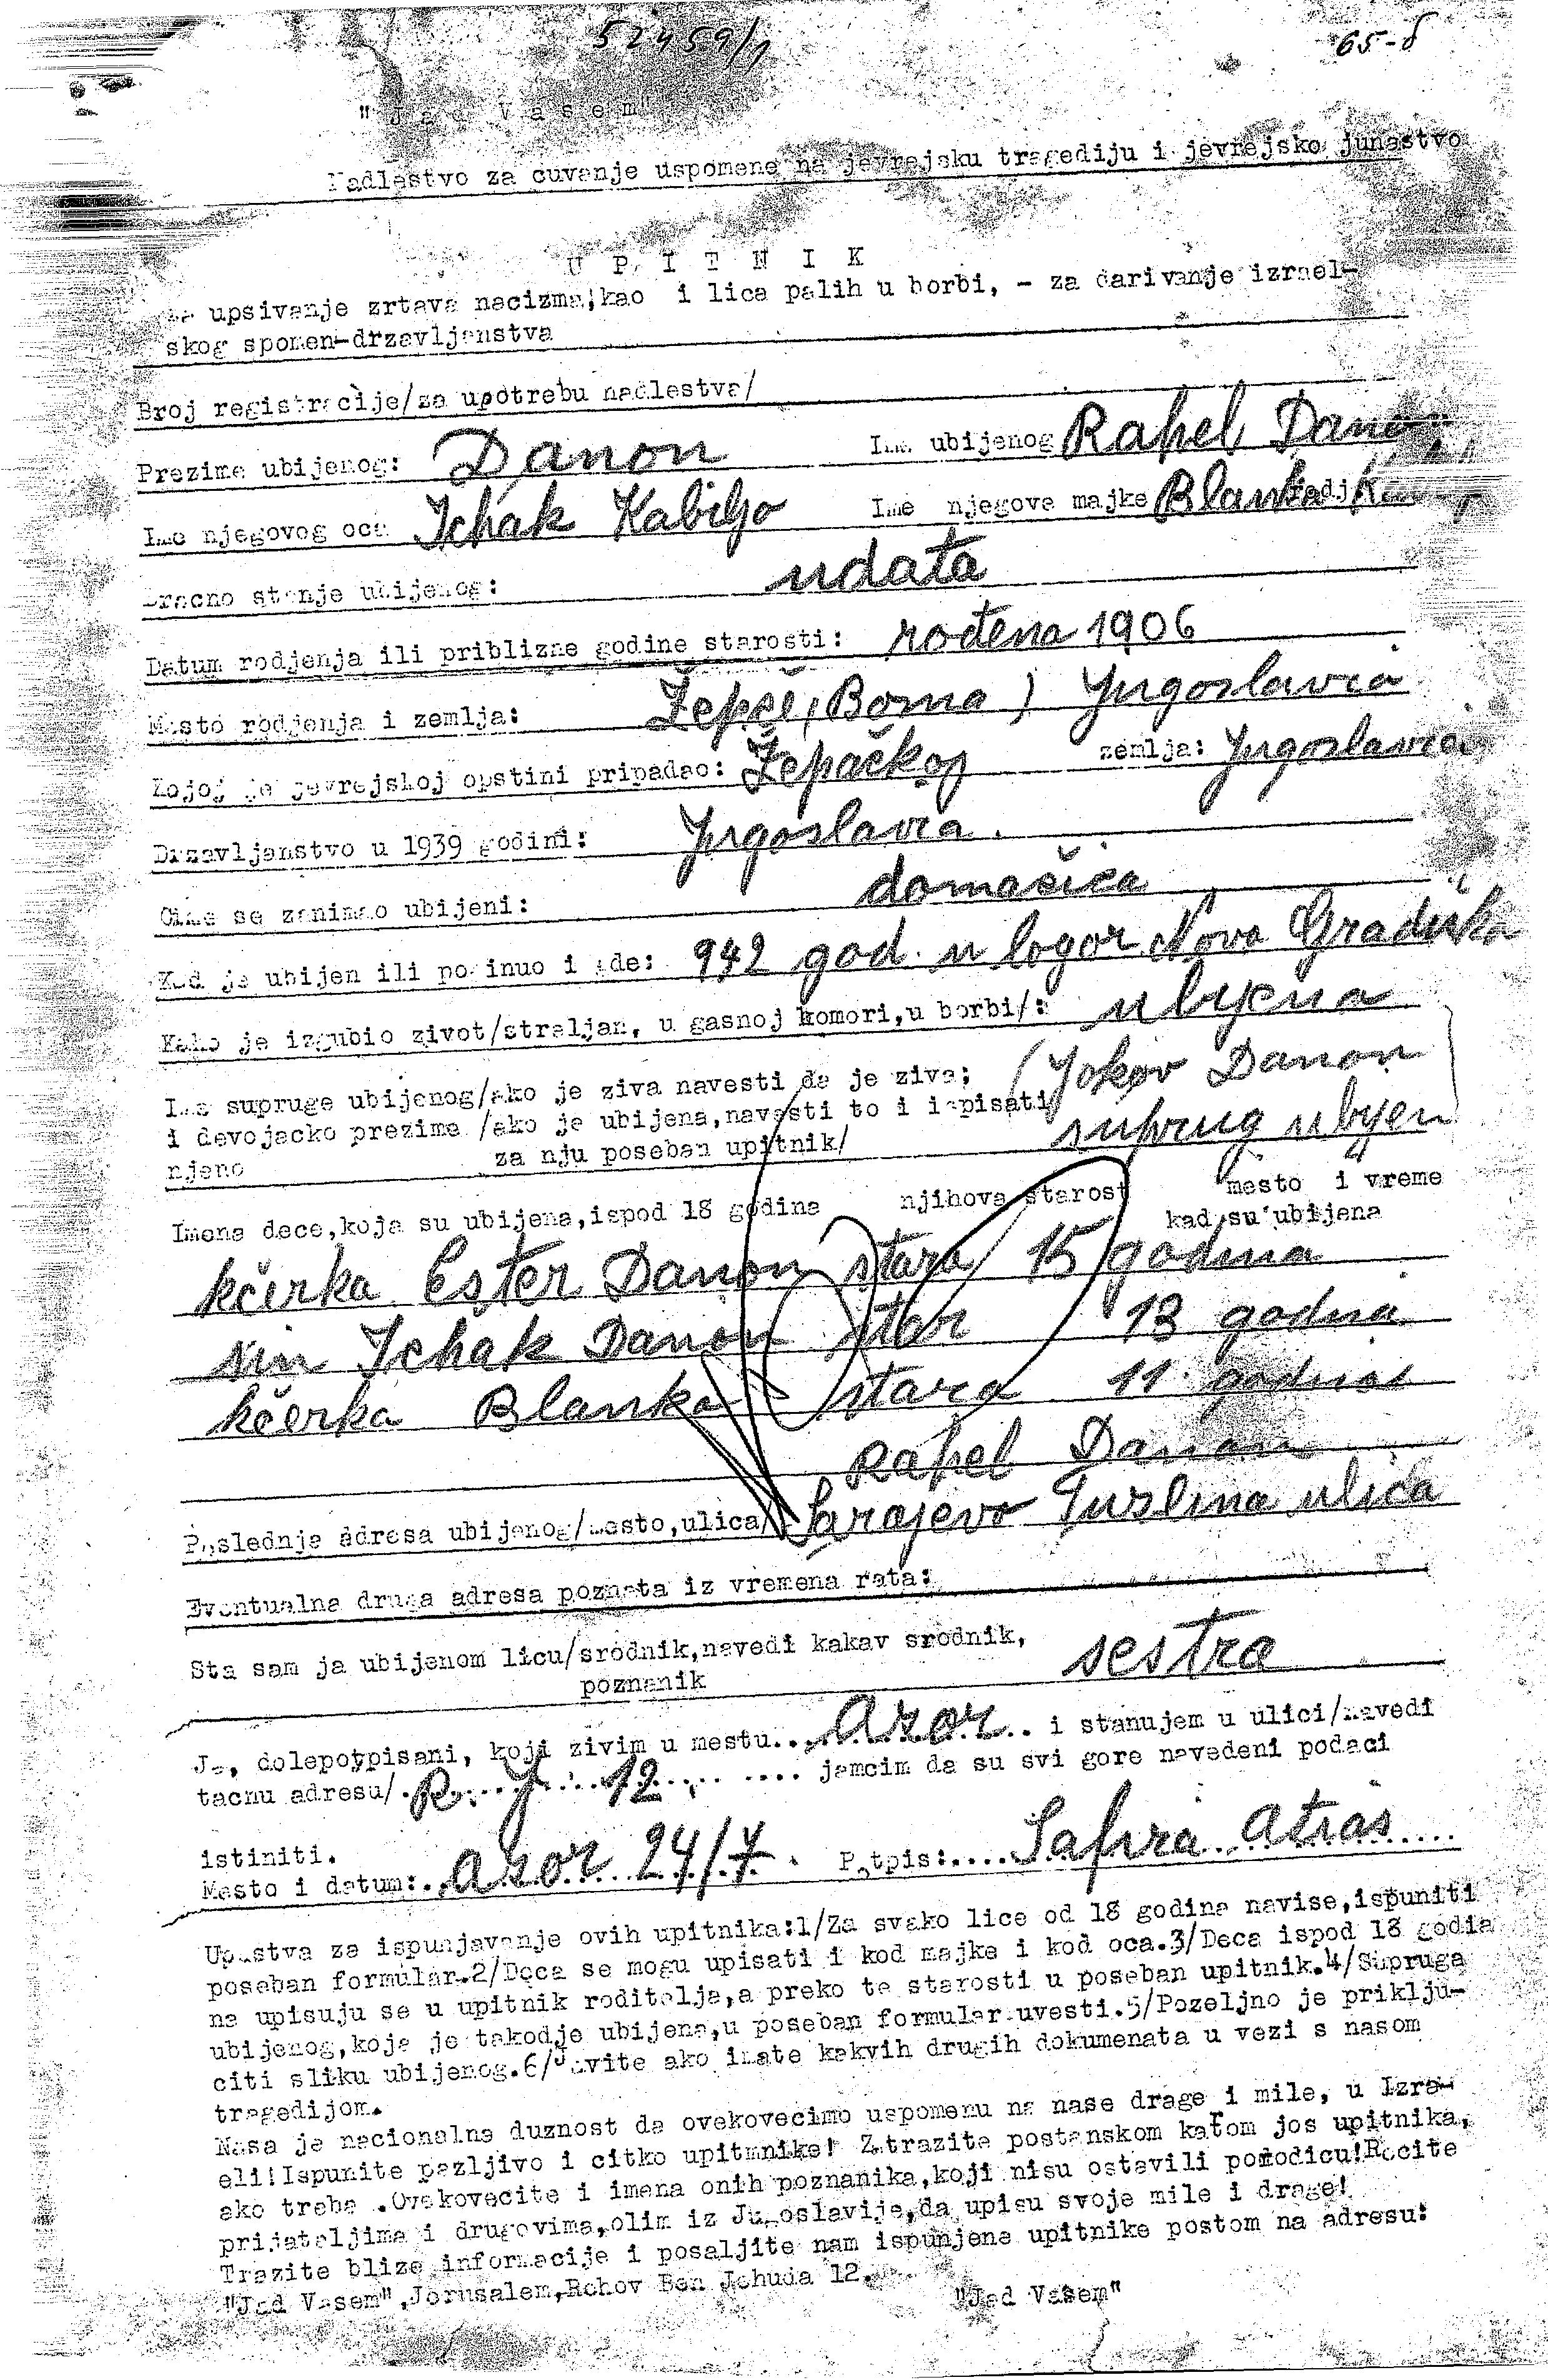 52459/1
65-б
"Jad Vasem"
Nadlestvo za cuvanje uspomene na jevrejsku tragediju i jevrejsko junastvo
U P I T N I K
za upsivanje zrtava nacizma,kao i lica palih u borbi, - za darivanje izrael-
skog spomen-drzavljanstva
Broj registracije/za upotrebu nadlestva/
Prezime ubijenog: Danon Ime ubijenog Rapel Danon
Ime njegovog oca Ichak Kabiljo Ime njegove majke Blanka
Bracno stanje ubijenog: udata
Datum rodjenja ili priblizne godine starosti: rođena 1906
Mesto rodjenja i zemlja: Žepče, Bosna, Jugoslavia
Kojoj je jevrejskoj opstini pripadao: Žepačkoj zemlja: Jugoslavia
Drzavljanstvo u 1939 godini: Jugoslavia.
Cime se zanimao ubijeni: domaćica
Kad je ubijen ili poginuo i gde: 942 god. u logor Nova Gradiška
Kako je izgubio zivot/streljan, u gasnoj komori,u borbi/: ubijena
Ime supruge ubijenog/ako je ziva navesti da je ziva; (Jakov Danon
i devojacko prezime /ako je ubijena,navesti to i ispisati suprug ubijen
njeno za nju poseban upitnik/
Imena dece,koja su ubijena,ispod 18 godina njihova starost mesto i vreme
kad su ubijena
kčerka Ester Danon stara 15 godina
sin Ichak Danon star 13 godina
kčerka Blanka stara 11 godina
Rapel Danon
Poslednja adresa ubijenog/mesto,ulica/ Sarajevo Tuslina ulica
Eventualna druga adresa poznata iz vremena rata:
Sta sam ja ubijenom licu/srodnik,navedi kakav srodnik, sestra
poznanik
Ja, dolepotpisani, koji zivim u mestu.. Azor .. i stanujem u ulici/navedi
tacnu adresu/. R. J. 12. .... jamcim da su svi gore navedeni podaci
istiniti.
Mesto i datum:. Azor 24/7. Potpis:.... Safira Atias ....
Upustva za ispunjavanje ovih upitnika:1/Za svako lice od 18 godina navise,ispuniti
poseban formular.2/Deca se mogu upisati i kod majke i kod oca.3/Deca ispod 18 godia
na upisuju se u upitnik roditelja,a preko te starosti u poseban upitnik.4/Supruga
ubijenog,koja je takodje ubijena,u poseban formular uvesti.5/Pozeljno je priklju-
citi sliku ubijenog.6/Javite ako imate kakvih drugih dokumenata u vezi s nasom
tragedijom.
Nasa je nacionalna duznost da ovekovecimo uspomenu na nase drage i mile, u Izra-
eli!Ispunite pazljivo i citko upitnnike! Zatrazite postanskom katom jos upitnika,
ako treba .Ovekovecite i imena onih poznanika,koji nisu ostavili porodicu!Recite
prijateljima i drugovima,olim iz Jugoslavije,da upisu svoje mile i drage!
Trazite blize informacije i posaljite nam ispunjene upitnike postom na adresu:
"Jad Vasem",Jerusalem,Rehov Ben Jehuda 12.
"Jad Vasem"